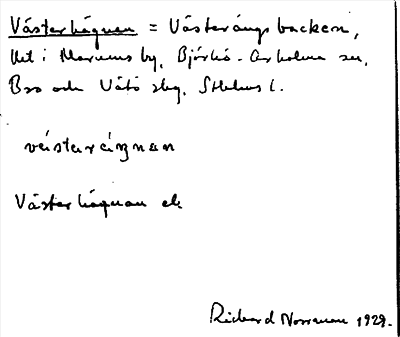 Västerhägnan = Västerängsbacken,
litt i Marums by, Björkö-Arholma sn,
Bro och Vätö skg. Sthlms l.
västarhägnan
Västerhägnan ek
Rickard Norrman 1929.